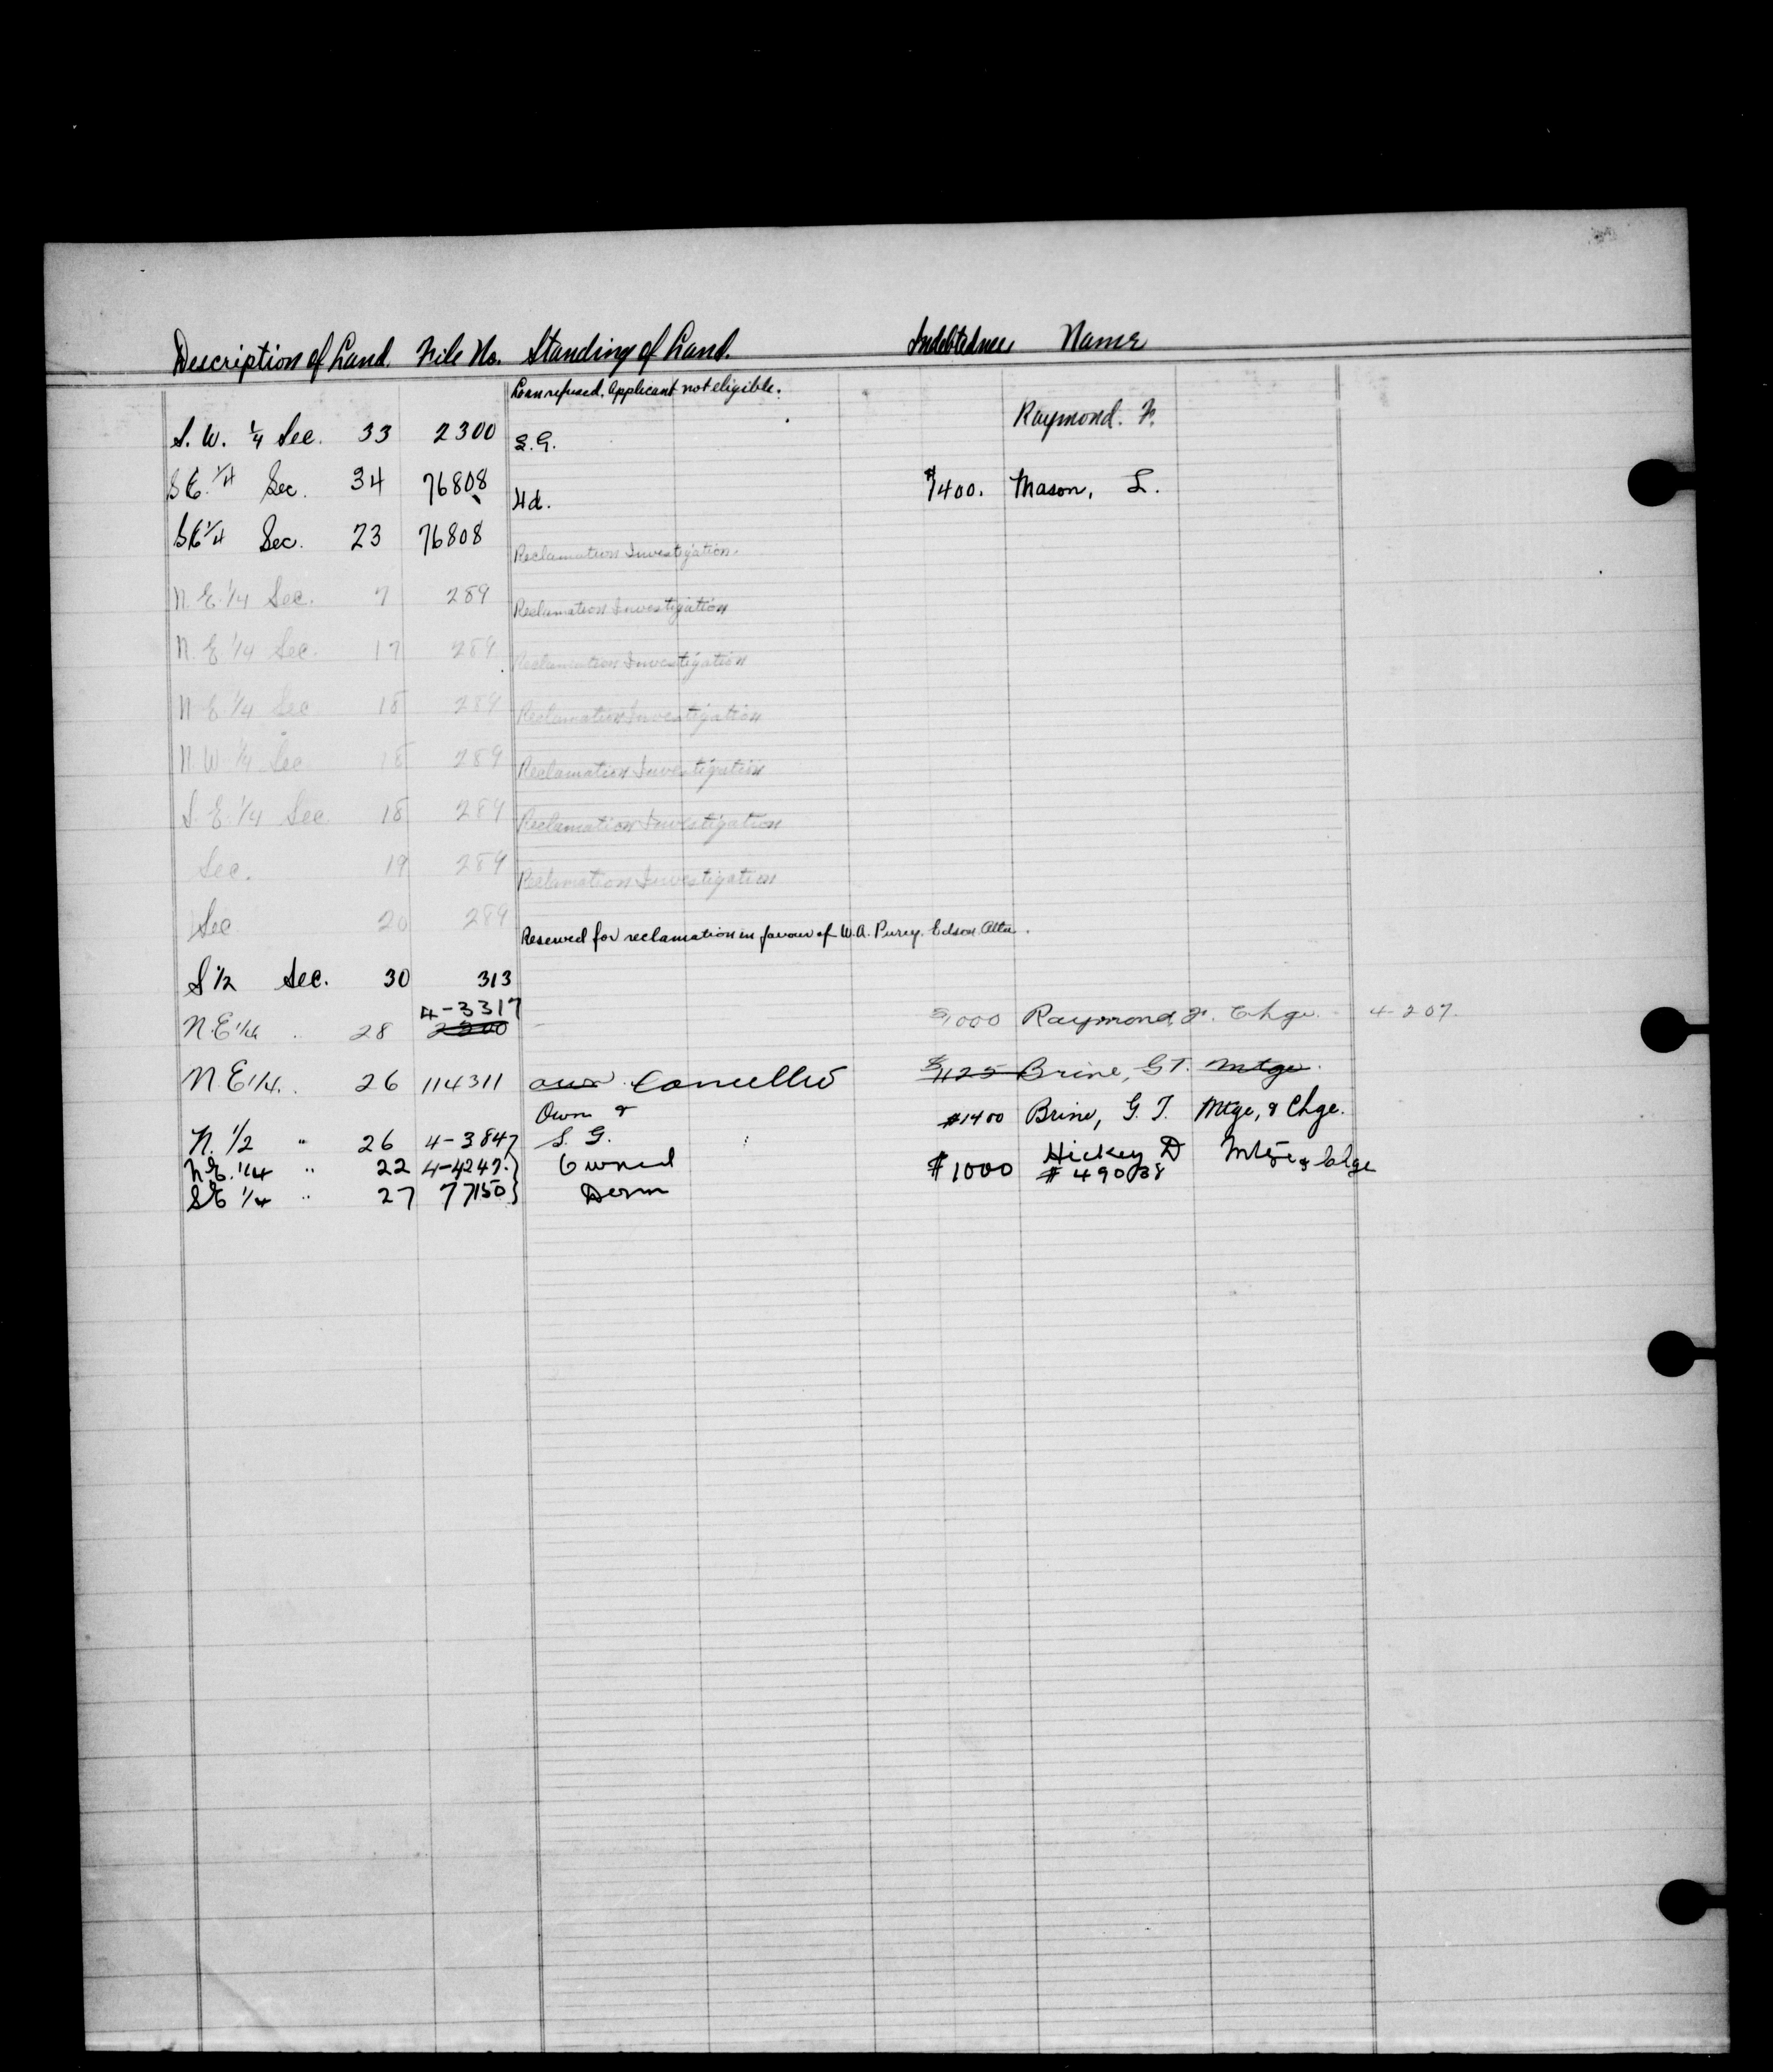 Description of Land. File No. Standing of Land. Indebtedness Name
Loan refused. Applicant not eligible.
S. W. ¼ Sec. 33 2300 S.G. Raymond. F.
S E. ¼ Sec. 34 76808 Hd. $1400. Mason, L.
S E ¼ Sec. 23 76808 Reclamation Investigation.
N. E. 1/4 Sec. 7 289 Reclamation Investigation
N. E 1/4 Sec. 17 289 Reclamation Investigation
N E 1/4 Sec 18 289 Reclamation Investigation
N. W 1/4 Sec 18 289 Reclamation Investigation
S. E. 1/4 Sec 18 289 Reclamation Investigation
Sec. 19 289 Reclamation Investigation
Sec 20 289 Reserved for reclamation in favour of W.A. Purcy. Edson Alta.
S 1/2 Sec. 30 313
4-3317
N. E 1/4 .. 28 2300 $1000 Raymond, F. Chge. 4-207.
N. E 1/4. . 26 114311 Cancelled $1125 Brine, G T. Mtge.
Own &
N. 1/2 " 26 4-3847 S. G. #1400 Brine, G. T. Mtge, & Chge.
N E. 1/4 " 22 4-4247. Owned $1000 Hickey D Mtge & Chge
# 490038
S E 1/4 " 27 77150 Dom